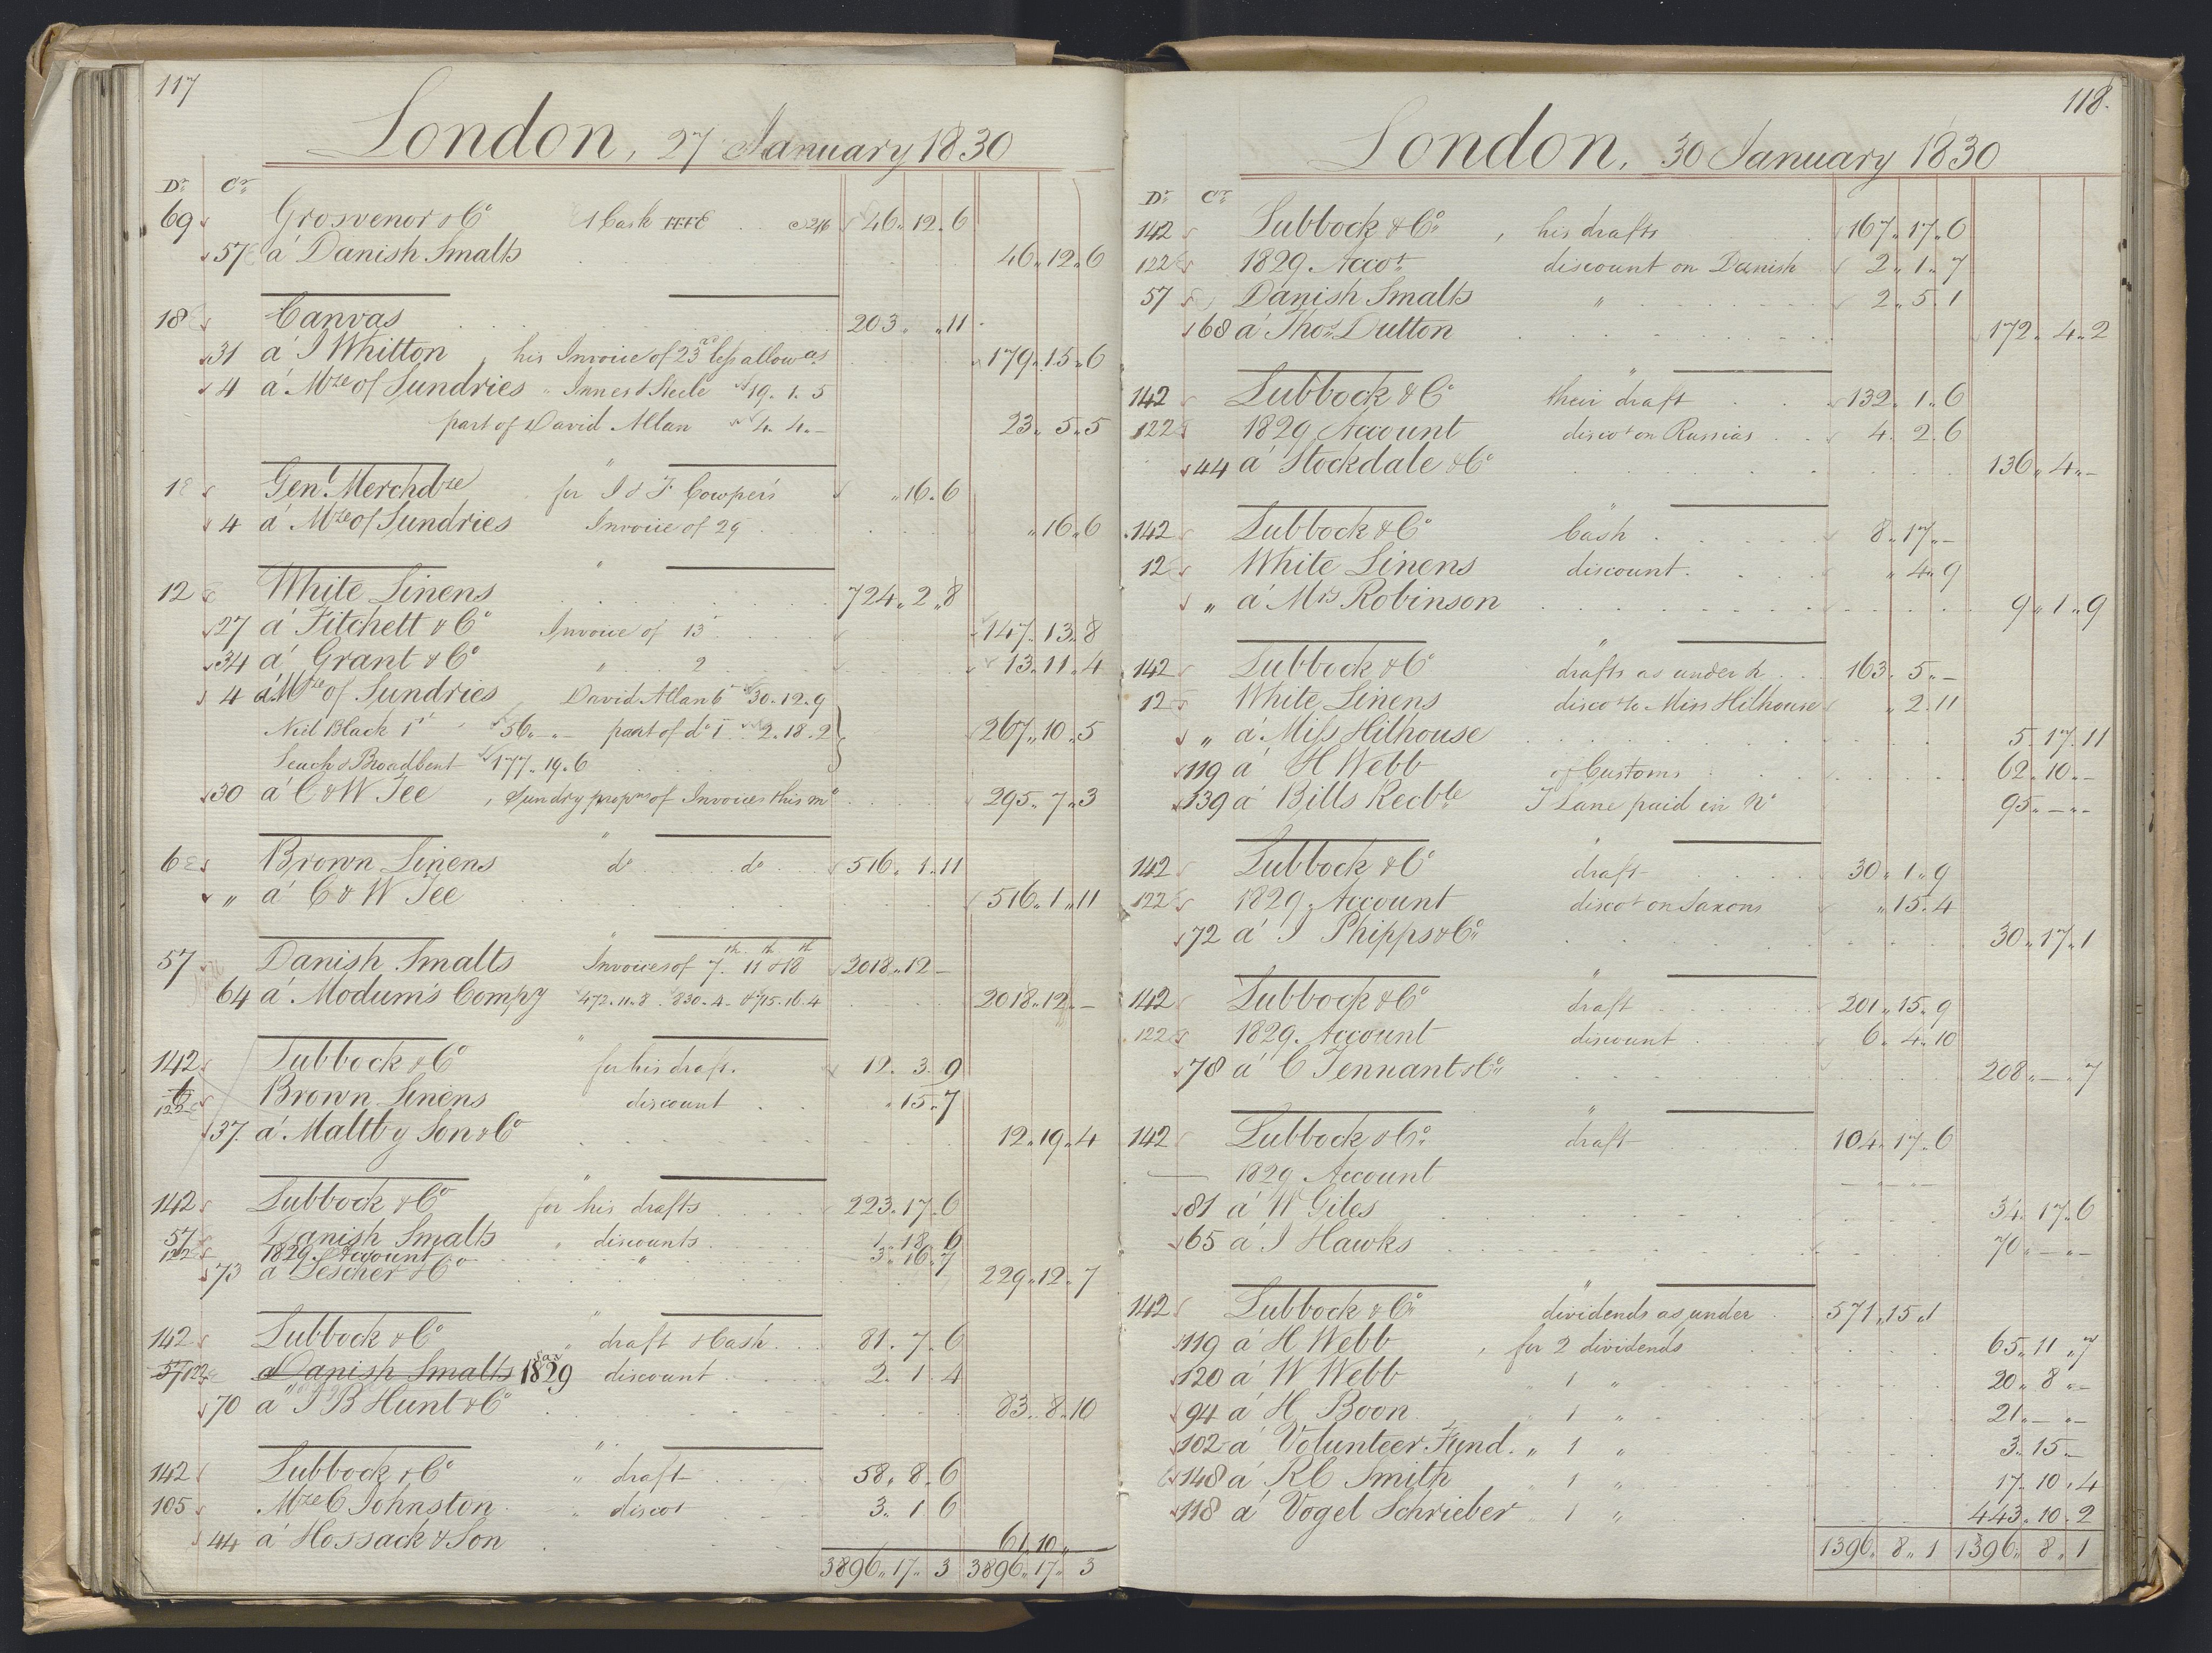 117
London, 27 January 1830
Dr Cr
69 Grosvenor & Co 1 Cask FFFE 46 „ 12 „ 6
57 a Danish Smalts 46 „ 12 „ 6
18 Canvas 203 „ „ 11
31 a J Whitton, his Invoice of 23rd less allowas 179 „ 15 „ 6
4 a Mze of Sundries „ Innes & Steele 19 . 1 . 5
part of David Allan 4 . 4 . – 23 „ 5 „ 5
1 Genl Merchdze for J & F Cowper's „ 16 „ 6
4 a Mze of Sundries Invoice of 29 „ 16 „ 6
12 White Linens 724 „ 2 „ 8
27 a Fitchett & Co Invoice of 13 147 „ 13 „ 8
34 a Grant & Co „ 2 13 „ 11 „ 4
4 a Mze of Sundries David Allan 6 30 . 12 . 9
Neil Black 1st 56 „ – part of do 2 . 18 . 2 267 „ 10 „ 5
Leach & Broadbent 177 „ 19 . 6
30 a C & W Tee, Sundry propns of Invoices this mo 295 „ 7 „ 3
6 Brown Linens do do 516 „ 1 „ 11
„ a C & W Tee 516 „ 1 „ 11
57 Danish Smalts Invoices of 7th 11th & 18th 2018 „ 12 –
64 a Modum's Compy 472 . 11 . 8 . 830 . 4 – & 715 . 16 . 4 2018 „ 12 „ –
142 Lubbock & Co for his draft. 12 . 3 . 9
6 122 Brown Linens discount „ 15 „ 7
37 a Maltby Son & Co 12 „ 19 „ 4
142 Lubbock & Co for his drafts 223 . 17 . 6
57 Danish Smalts „ discounts 1 . 18 . 6
122 1829 Account „ 3 . 16 . 7
73 a Lescher & Co 229 „ 12 „ 7
142 Lubbock & Co „ draft & Cash 81 . 7 . 6
57 122 a Danish Smalts Sax 1829 discount 2 . 1 . 4
70 a J B Hunt & Co 83 . 8 . 10
142 Lubbock & Co „ draft 58 „ 8 . 6
105 Mze C Johnston „ discot 3 „ 1 . 6
44 a Hossack & Son 61 . 10 „
3896 „ 17 „ 3 3896 „ 17 „ 3
118.
London, 30 January 1830
Dr Cr
142 Lubbock & Co, his drafts 167 „ 17 „ 6
122 1829 Accot discount on Danish 2 „ 1 „ 7
57 Danish Smalts „ 2 . 5 . 1
68 a Thos Dutton 172 „ 4 „ 2
142 Lubbock & Co their draft 132 . 1 . 6
122 1829 Account discot on Russias 4 . 2 . 6
44 a Stockdale & Co 136 „ 4 „ –
142 Lubbock & Co Cash 8 „ 17 „ –
12 White Linens discount. „ 4 „ 9
„ a Mrs Robinson 9 „ 1 „ 9
142 Lubbock & Co drafts as under 163 . 5 „ –
12 White Linens discot to Miss Hilhouse „ 2 . 11
„ a Miss Hilhouse 5 . 17 . 11
119 a H Webb of Customs 62 . 10 „ –
139 a Bills Recble J Lane paid in 95 „ – „ –
142 Lubbock & Co draft 30 „ 1 „ 9
122 1829. Account discot on Saxons „ 15 . 4
72 a J Phipps & Co 30 „ 17 „ 1
142 Lubbock & Co draft 201 „ 15 „ 9
122 1829. Account discount 6 . 4 . 10
78 a C Tennant & Co 208 „ – „ 7
142 Lubbock & Co draft 104 „ 17 . 6
— 1829 Account – „ – „ –
81 a W Giles 34 „ 17 „ 6
65 a J Hawks 70 „ – „ –
142 Lubbock & Co dividends as under 571 „ 15 „ 1
119 a H Webb, for 2 dividends 65 „ 11 „ 7
120 a W Webb „ 1 „ 20 „ 8 „ –
94 a H Boon „ 1 „ 21 „ – „ –
102 a Volunteer Fund. „ 1 „ 3 „ 15 „ –
148 a RC Smith „ 1 „ 17 . 10 „ 4
118 a Vogel Schrieber „ 1 „ 443 „ 10 . 2
1396 „ 8 „ 1 1396 „ 8 „ 1